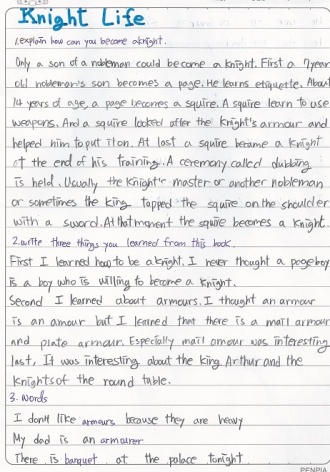 Knight Life
1. explain how can you become a knight.
Only a son of a nobleman could become a knight. First a 7year
old nobleman's son becomes a page. He learns etiquette. About
14 years of age, a page becomes a squire. A squire learn to use
weapons. And a squire looked after the knight's armour and
helped him to put it on. At last a squire became a knight
at the end of his training. A ceremony called dubbing
is held. Usually the knight's master or another nobleman
or sometimes the king tapped the squire on the shoulder
with a sword. At that moment the squire becomes a knight.
2. write three things you learned from this book.
First I learned how to be a knight. I never thought a pageboy
is a boy who is willing to become a knight.
Second I learned about armours. I thought an armour
is an amour but I learned that there is a mail armour
and plate armour. Especially mail amour was interesting
last, It was interesting about the king Arthur and the
knights of the round table.
3. words
I don't like armours because they are heavy
My dad is an armourer
There is banquet at the palace tonight
PENPIA